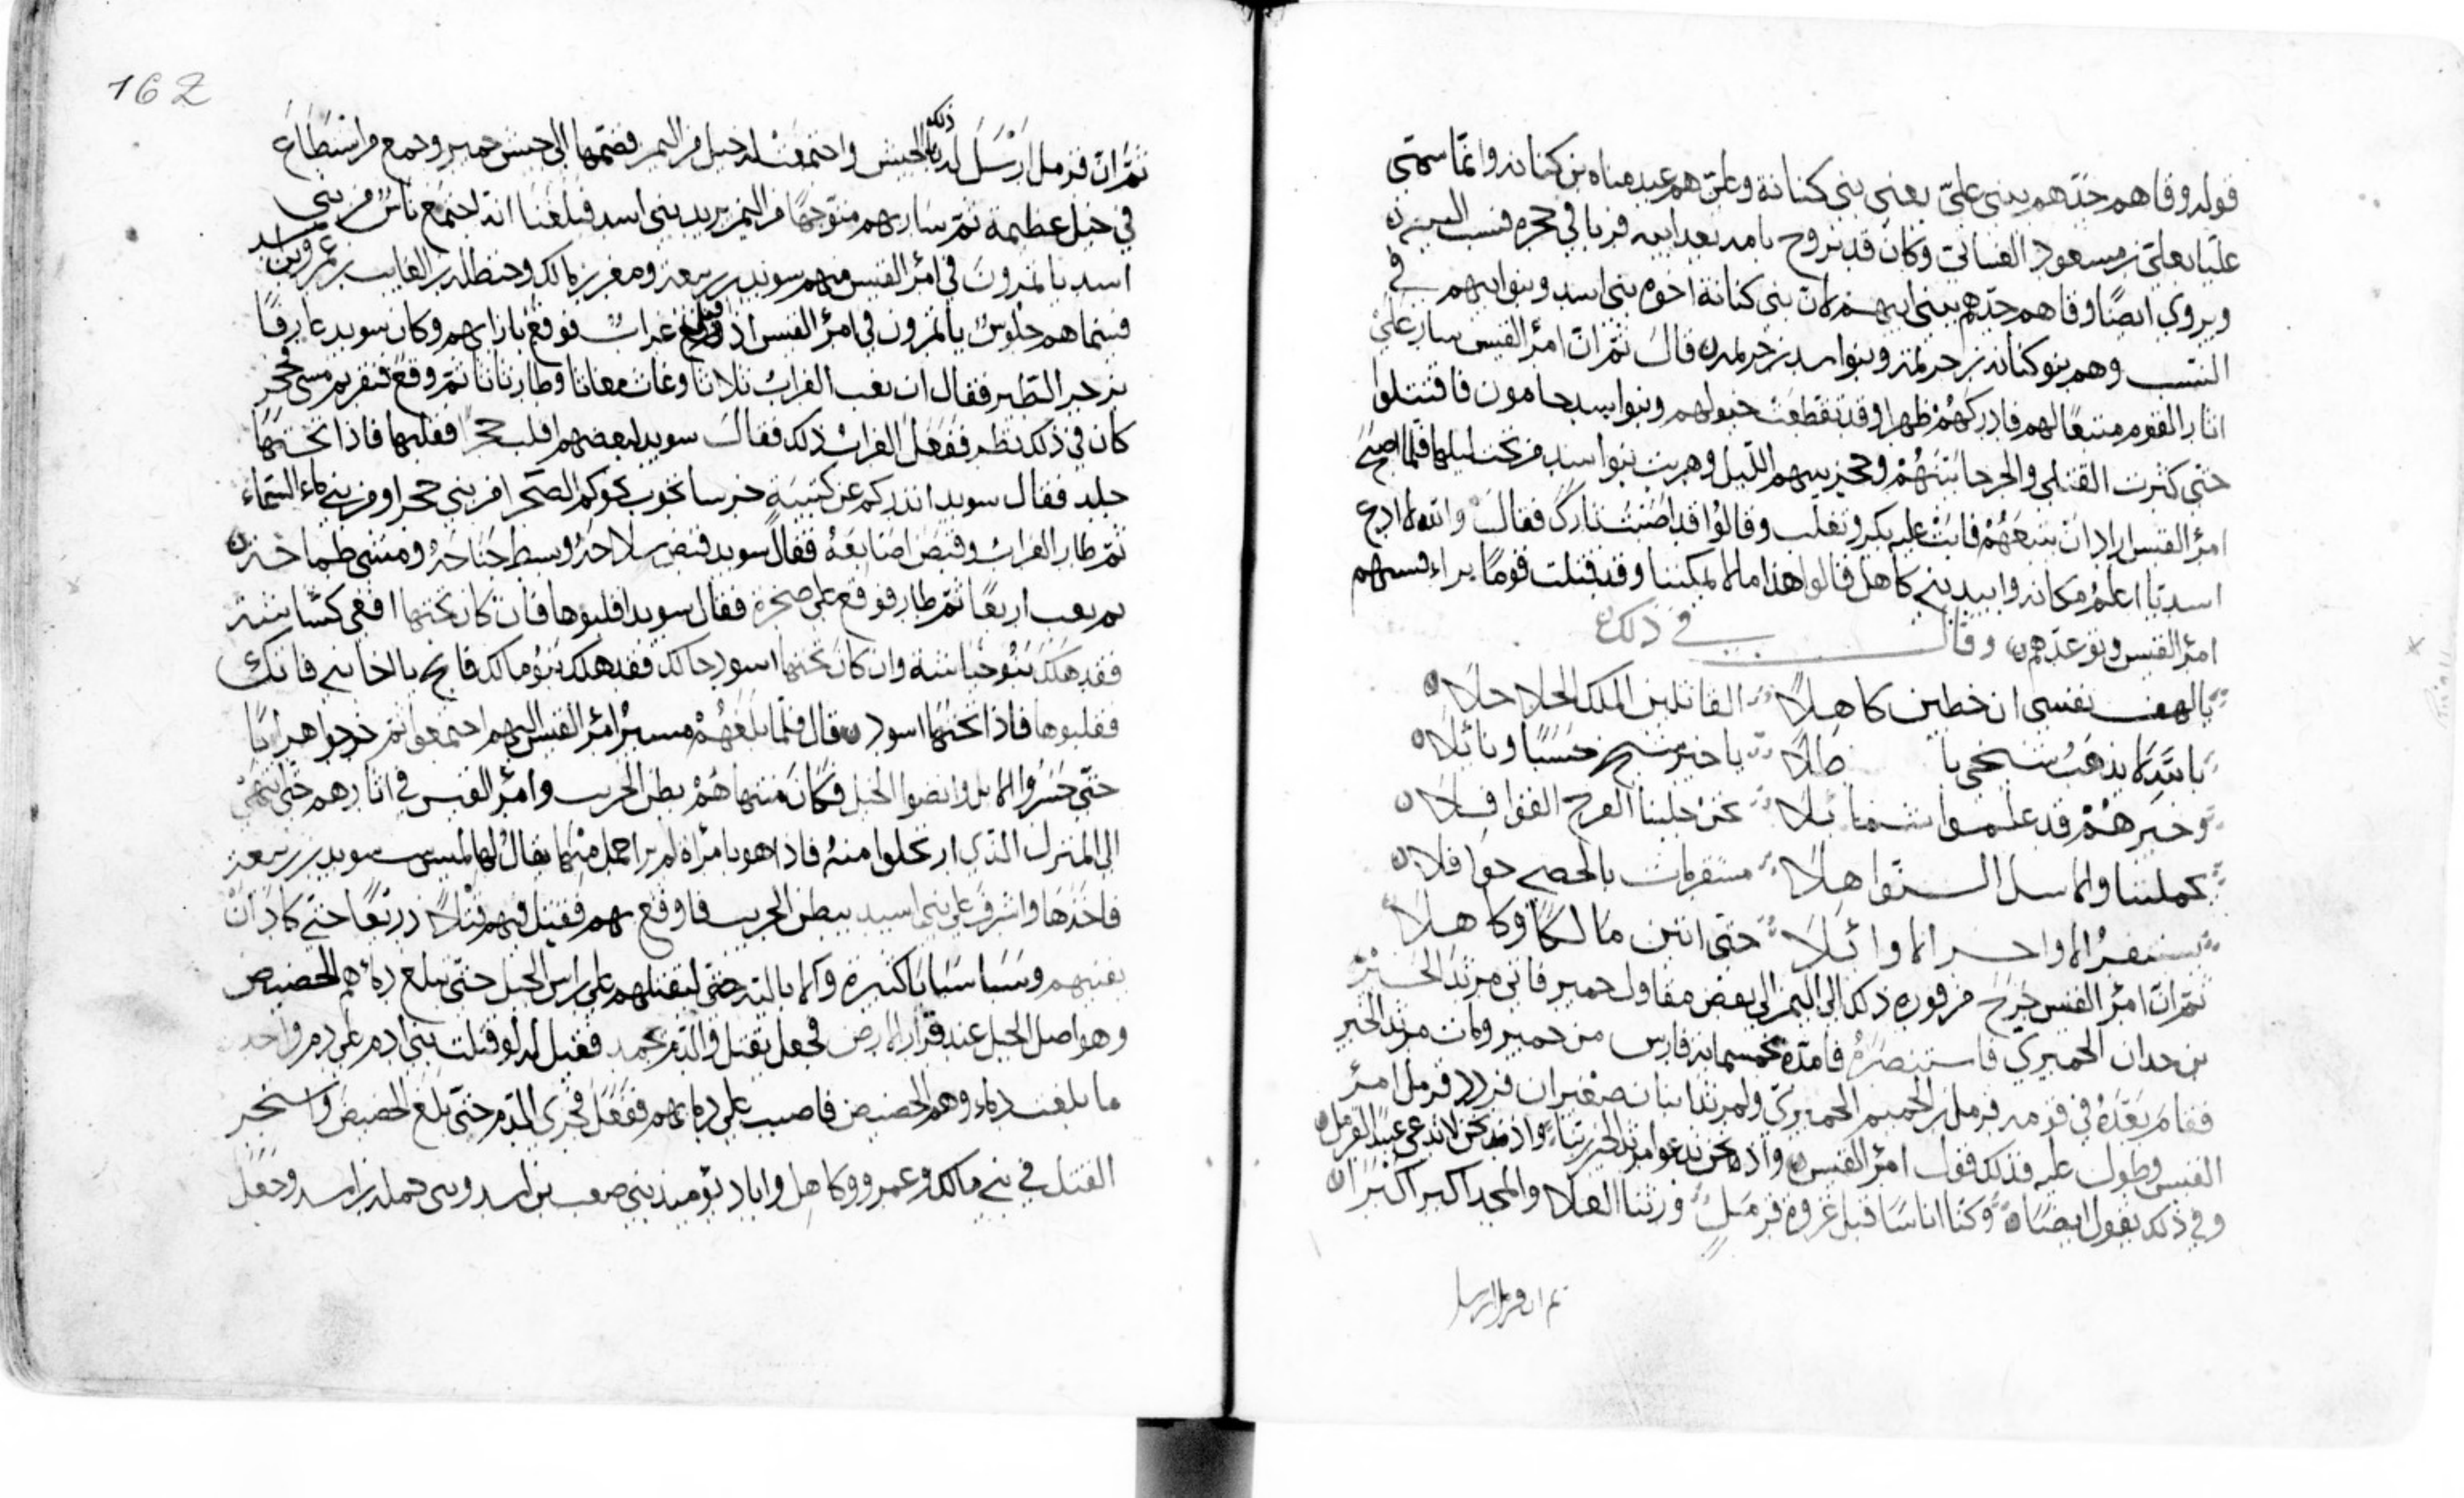 قوله وقاهم جدهم ببني علي يعني بني كنانة وعلي هم عبد مناه بن كنانه وانما سمي
عليا بعلي بن مسعود الغساني وكان قد تزوج بامه بعد ابيه فربا في حجره فنسب اليه
ويروى ايضا وقاهم جدهم ببني ابيهم لان بني كنانة اخوه بني اسد وبنو ابيهم في
النسب وهم بنو كنانه بن خزيمة وبنو اسد بن خزيمه قال ثم ان امرؤ القيس سار علي
اثار القوم متبعا لهم فادركهم ظهرا وقد تقطعت خيولهم وبنوا اسد حامون فاقتتلوا
حتى كثرت القتلى والجرحا بينهم وحجز بينهم الليل وهربت بنوا اسد من تحت ليلها فلما اصبح
امرؤ القيس اراد ان يتبعهم فابت عليه بكر وتغلب وقالوا قد اصبت ثارك فقال والله لا ادع
اسديا اعلم مكانه وابيد بني كاهل قالوا هذا ما لا يمكننا وقد قتلت قوما براء فسبهم
امرؤ القيس وتوعدهم وقال في ذلك
يالهف نفسي ان خطين كاهلا القاتلين الملك الحلاحلا
يا خير شيخ حسبا ونائلا
وخيرهم قد علموا شمائلا نحن جلبنا القرح القوافلا
يحملننا والاسل النواهلا مستفرمات بالحصى جوافلا
تستنفر الاواخر الاوائلا حتى اتين مالكا وكاهلا
ثم ان امرؤ القيس خرج من فوره ذلك الى اليمن الى بعض مقاول حمير فاتى مرثد الخير
بن جدان الحميري فاستنصره فامده بخمسمائه فارس من حمير ومات مرثد الخير
فقام بعده في قومه قرمل بن الحميم الحميري ولمرثد ابنان صغيران فردد قرمل امرؤ
القيس وطول عليه فذلك قول امرؤ القيس واذ نحن ندعوا مرثد الخير ربنا واذ نحن لا ندعى عبيدا لقرمل
وفي ذلك يقول ايضا وكنا اناسا قبل غزوة قرمل ورثنا العلا والمجد اكبر اكبرا
ثم ان قرمل ارسل
162
ذلك
ثم ان قرمل ارسل له بالجيش واجتمعت له خيل من اليمن فضمها الى جيش حمير وجمع من استطاع
في خيل عظيمة ثم سار بهم متوجها من اليمن يريد بني اسد فبلغنا انه اجتمع ناس من بني
اسد يأتمرون في امرؤ القيس منهم سويد بن ربيعة ومالك وحنظله بن عمرو بن اسد
فبينما هم جلوس يأتمرون في امرؤ القيس اذ وقع غراب فوقع بازايهم وكان سويد عارفا
بزجر الطير فقال ان نعب الغراب ثلاثا ثم وقع
كان في ذلك نظر ففعل الغراب ذلك فقال سويد لبعضهم اقلب حجرا فقلبها فاذا تحتها
جلد فقال سويد انذركم عن كتيبة خرسا نحوكم
ثم طار الغراب وقبض اصابعه فقال سويد قبض سلاحه وبسط جناحه ومشى
ثم نعب اربعا ثم طار فوقع على صخرة فقال سويد اقلبوها فان كان تحتها افعى
فقد هلك بنو وان كان تحتها اسود حالك فقد هلك بنو مالك
فقلبوها فاذا تحتها اسود قال فلما بلغهم مسير امرؤ القيس اليهم اجتمعوا ثم خرجوا هرابا
حتى حسروا الابل وانضوا الخيل فكان منتهاهم بطن الجريب وامرؤ القيس في اثارهم حتى انتهى
الى المنزل الذي ارتحلوا منه فاذا هو بامرأة لم ير اجمل منها يقال لها لميس بنت سويد بن ربيعة
فاخذها واشرف على بني اسد ببطن الجريب فاوقع بهم فقتل فيهم قتلا ذريعا حتى كاد ان
يفنيهم وسبا سبايا كثيرة وآلا بالله حتى ليقتلهم على راس الجبل حتى يبلغ دماهم الحضيض
وهو اصل الجبل عند قرار الارض فجعل يقتل والدم يجمد فقيل له لو قتلت بني ادم على دم واحد
ما بلغت دماوهم الحضيض فاصبب على دمايهم ففعل فجرى الدم حتى بلغ الحضيض واستحر
القتل في بني مالك وعمرو وكاهل واباد يوميذ بني صعب بن اسد وجعل